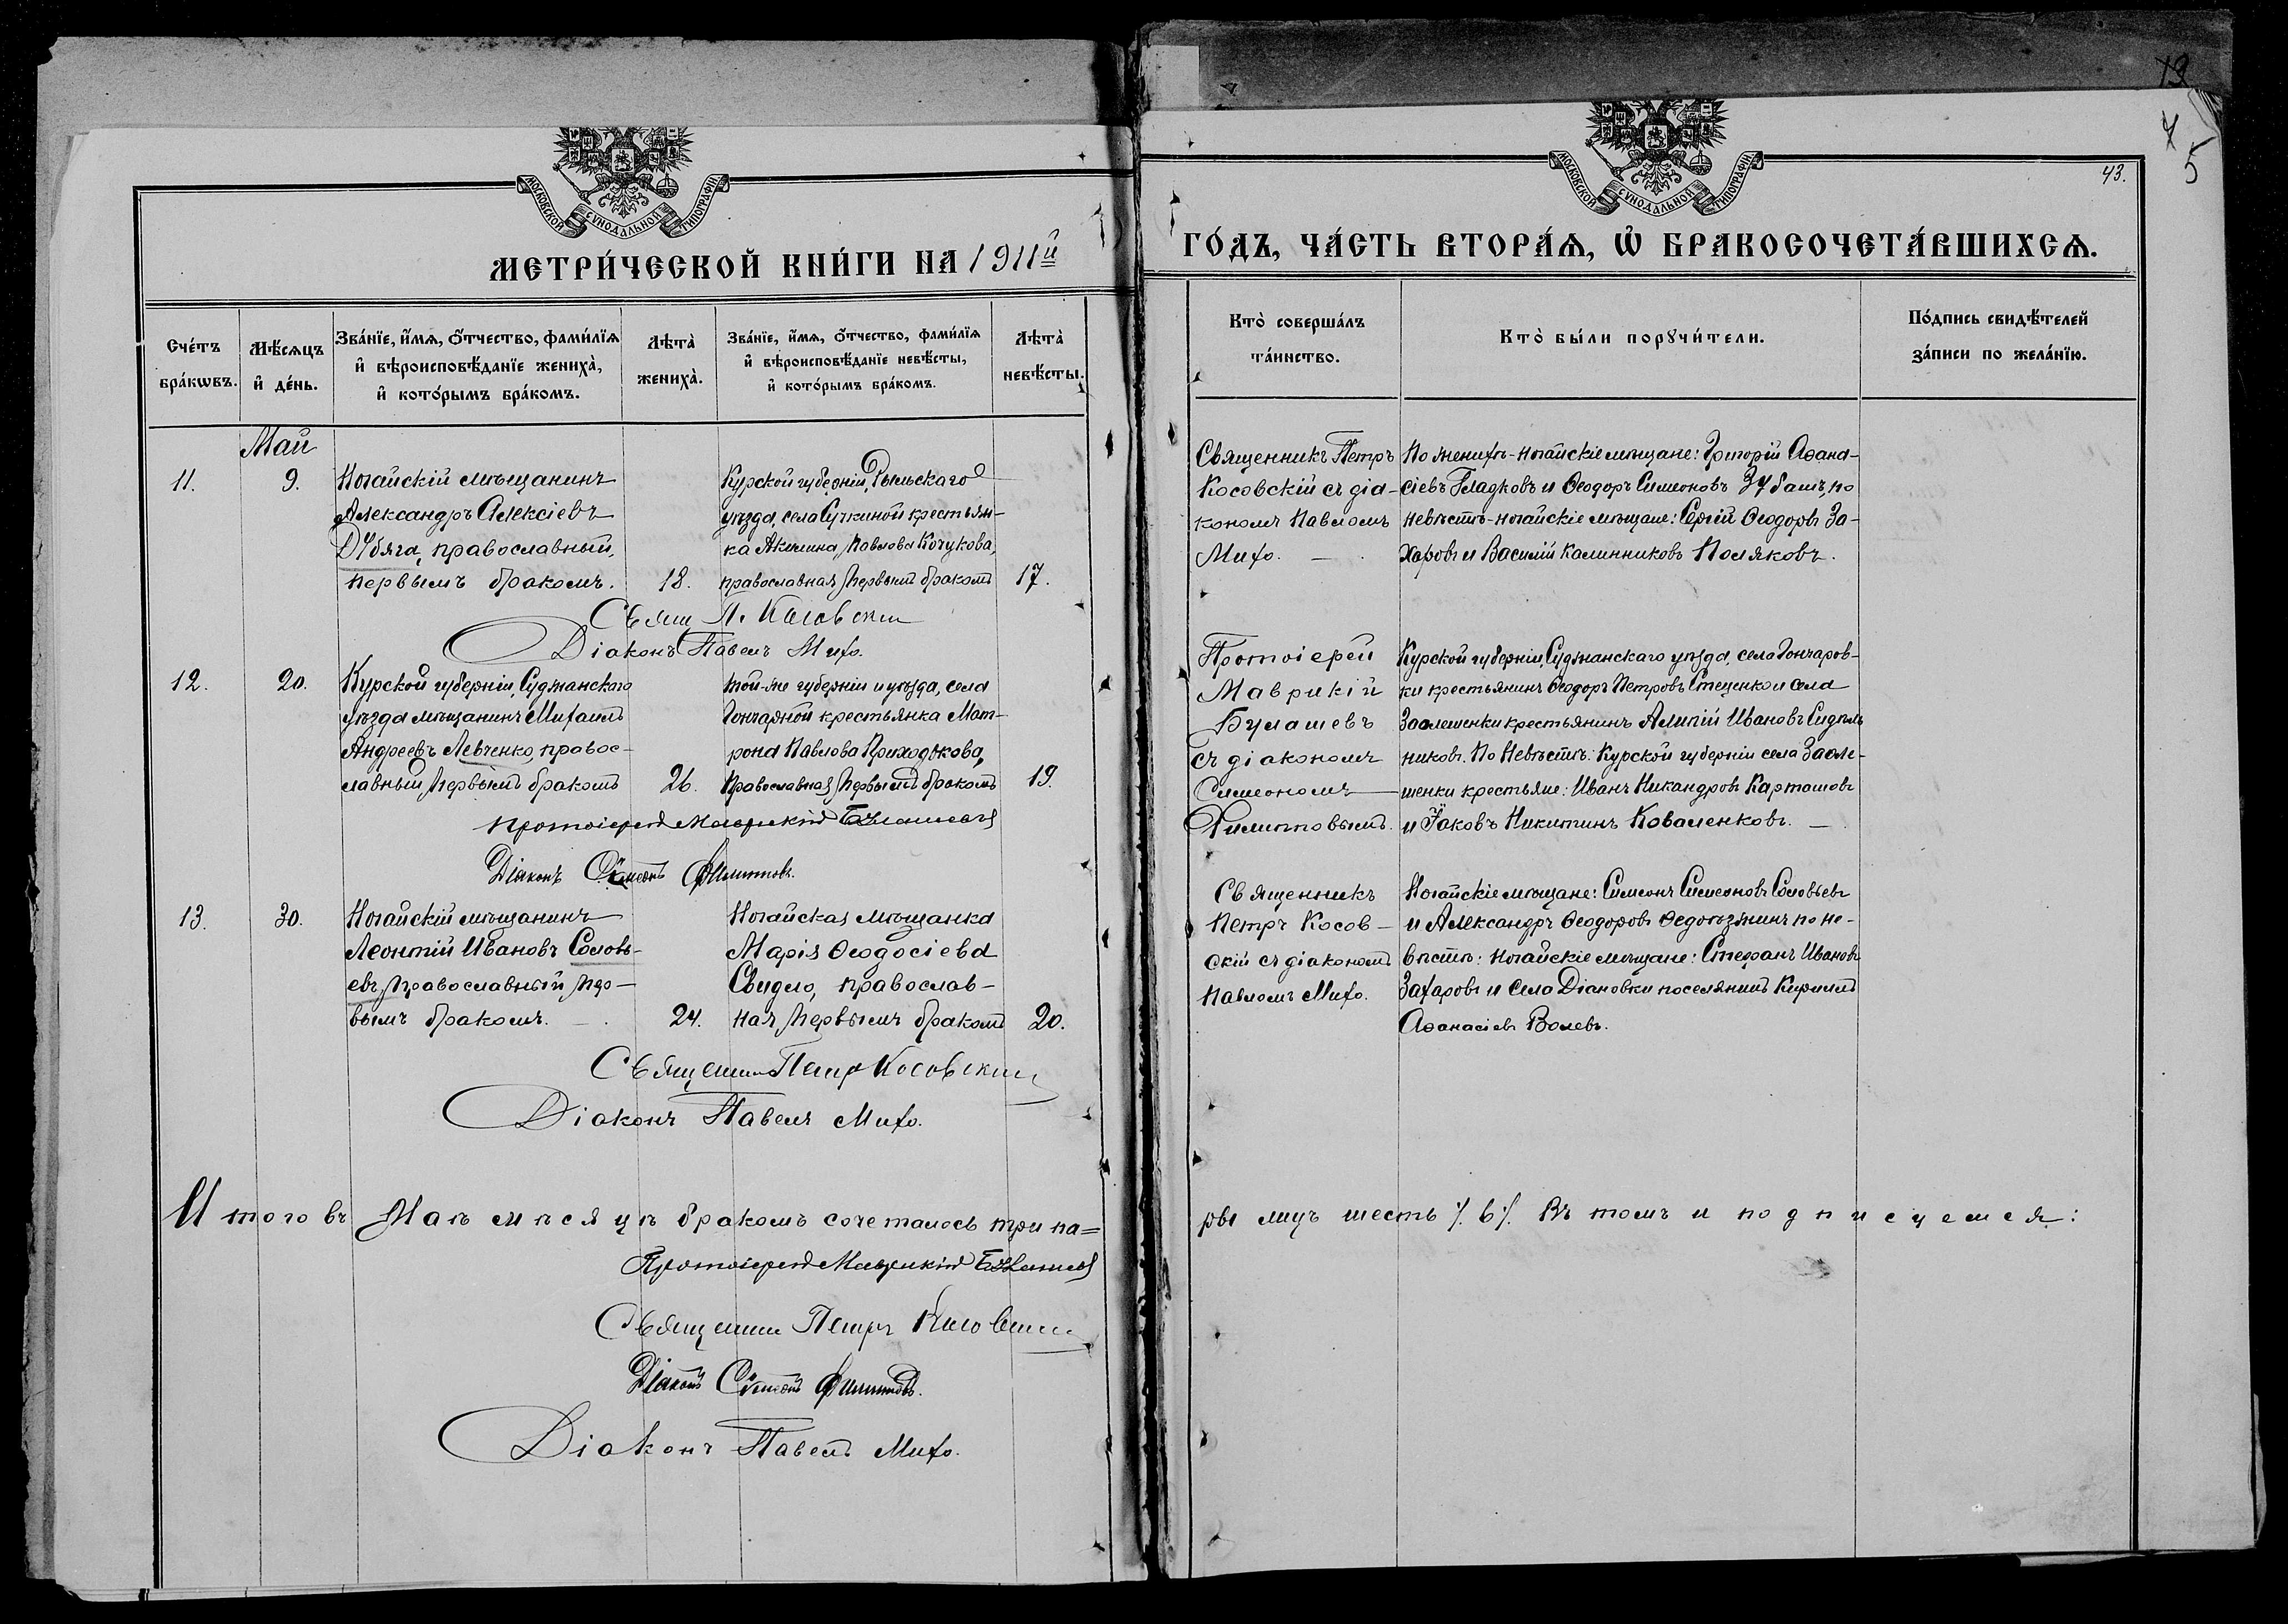 МОСКОВСКОЙ СѴНОДАЛЬНОЙ ТИПОГРАФІИ
МЕТРИ́ЧЕСКОЙ КНИ́ГИ НА 1911й
Сче́тъ бра́кѡвъ.
Мѣ́сяцъ и҆ де́нь.
Зва́нїе, и҆́мѧ, ѻ҆́тчество, фами́лїѧ
и҆ вѣроисповѣ́данїе жениха̀,
и҆ кото́рымъ бра́комъ.
Лѣта̀ жениха̀.
Зва́нїе, и҆́мѧ, ѻ҆́тчество, фами́лїѧ
и҆ вѣроисповѣ́данїе невѣ́сты,
и҆ кото́рымъ бра́комъ.
Лѣта̀ невѣ́сты.
Май
11.
9.
Ногайскій мѣщанинъ
Александръ Алексіевъ
Дубяга, православный,
первымъ бракомъ.
18.
Курской губерніи, Рыльскаго
уѣзда, села Сучкиной крестьян-
ка Акилина Павлова Кочукова,
православная, первымъ бракомъ
17.
Свящ П. Косовскій
Діаконъ Павелъ Михо.
12.
20.
Курской губерніи, Суджанскаго
уѣзда мѣщанинъ Михаилъ
Андреевъ Левченко, правос-
славный, первымъ бракомъ
26.
той-же губерніи и уѣзда, села
Гончарной крестьянка Мат-
рона Павлова Приходькова,
православная, первымъ бракомъ
19.
Протоіерей Маврикій Булашевъ
Діаконъ Сѵмеонъ Филипповъ.
13.
30.
Ногайскій мѣщанинъ
Леонтій Ивановъ Соловь-
евъ, православный, пер-
вымъ бракомъ.
24.
Ногайская мѣщанка
Марія Ѳеодосіева
Свидло, православ-
ная, первымъ бракомъ
20.
Священникъ Петръ Косовскій
Діаконъ Павелъ Михо.
Итого въ Маѣ мѣсяцѣ бракомъ сочеталось три па=
Протоіерей Маврикій Булашевъ
Священникъ Петръ Косовскій
Діаконъ Сѵмеонъ Филипповъ.
Діаконъ Павелъ Михо.
13
7
5
43.
МОСКОВСКОЙ СѴНОДАЛЬНОЙ ТИПОГРАФІИ
ГО́ДЪ, ЧА́СТЬ ВТОРА́Ѧ, Ѡ҆ БРАКОСОЧЕТА́ВШИХСѦ.
Кто̀ соверша́лъ
та́инство.
Кто̀ бы́ли порꙋчи́тели.
По́дпись свидѣ́телей
за́писи по жела́нїю.
Священникъ Петръ
Косовскій съ діа-
кономъ Павломъ
Михо.
По женихѣ-ногайскіе мѣщане: Григорій Аѳана-
сіевъ Гладковъ и Ѳеодоръ Симеоновъ Зубашъ, по
невѣстѣ-ногайскіе мѣщане: Сергій Ѳеодоровъ За-
харовъ и Василій Калинниковъ Поляковъ.
Протоіерей
Маврикій
Булашевъ
съ діакономъ
Симеономъ
Филипповымъ.
Курской губерніи, Суджанскаго уѣзда, села Гончаров-
ки крестьянинъ Ѳеодоръ Петровъ Стеценко и села
Заолешенки крестьянинъ Алипій Ивановъ Сидѣль
никовъ. По Невѣстѣ: Курской губерніи села Заоле-
шенки крестьяне: Иванъ Никандровъ Карташовъ
и Іаковъ Никитинъ Коваленковъ.
Священникъ
Петръ Косов-
скій съ діакономъ
Павломъ Михо.
Ногайскіе мѣщане: Симеонъ Симеоновъ Соловьевъ
и Александръ Ѳеодоровъ Ѳедотъзжинъ по не-
вѣстѣ: Ногайскіе мѣщане: Стефанъ Ивановъ
Захаровъ и села Діановки поселянинъ Кириллъ
Аѳанасіевъ Волевъ.
ры лицъ шесть /. 6 /. Въ томъ и подписуемся: